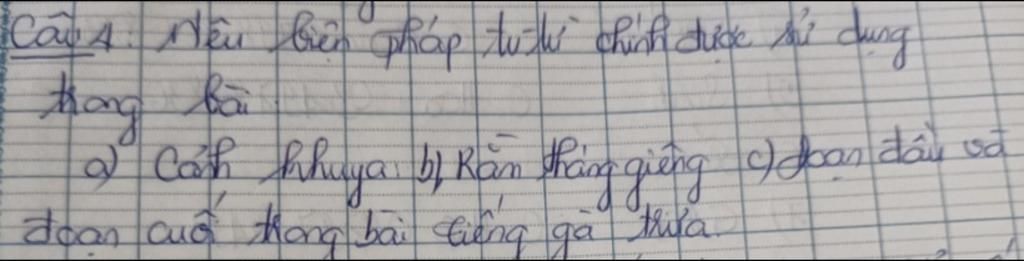 Câu 4: Nêu biện pháp tu từ chính được sử dụng
trong bài
a) Cảnh khuya b) Rằm tháng giêng c) đoạn đầu và
đoạn cuối trong bài tiếng gà trưa.